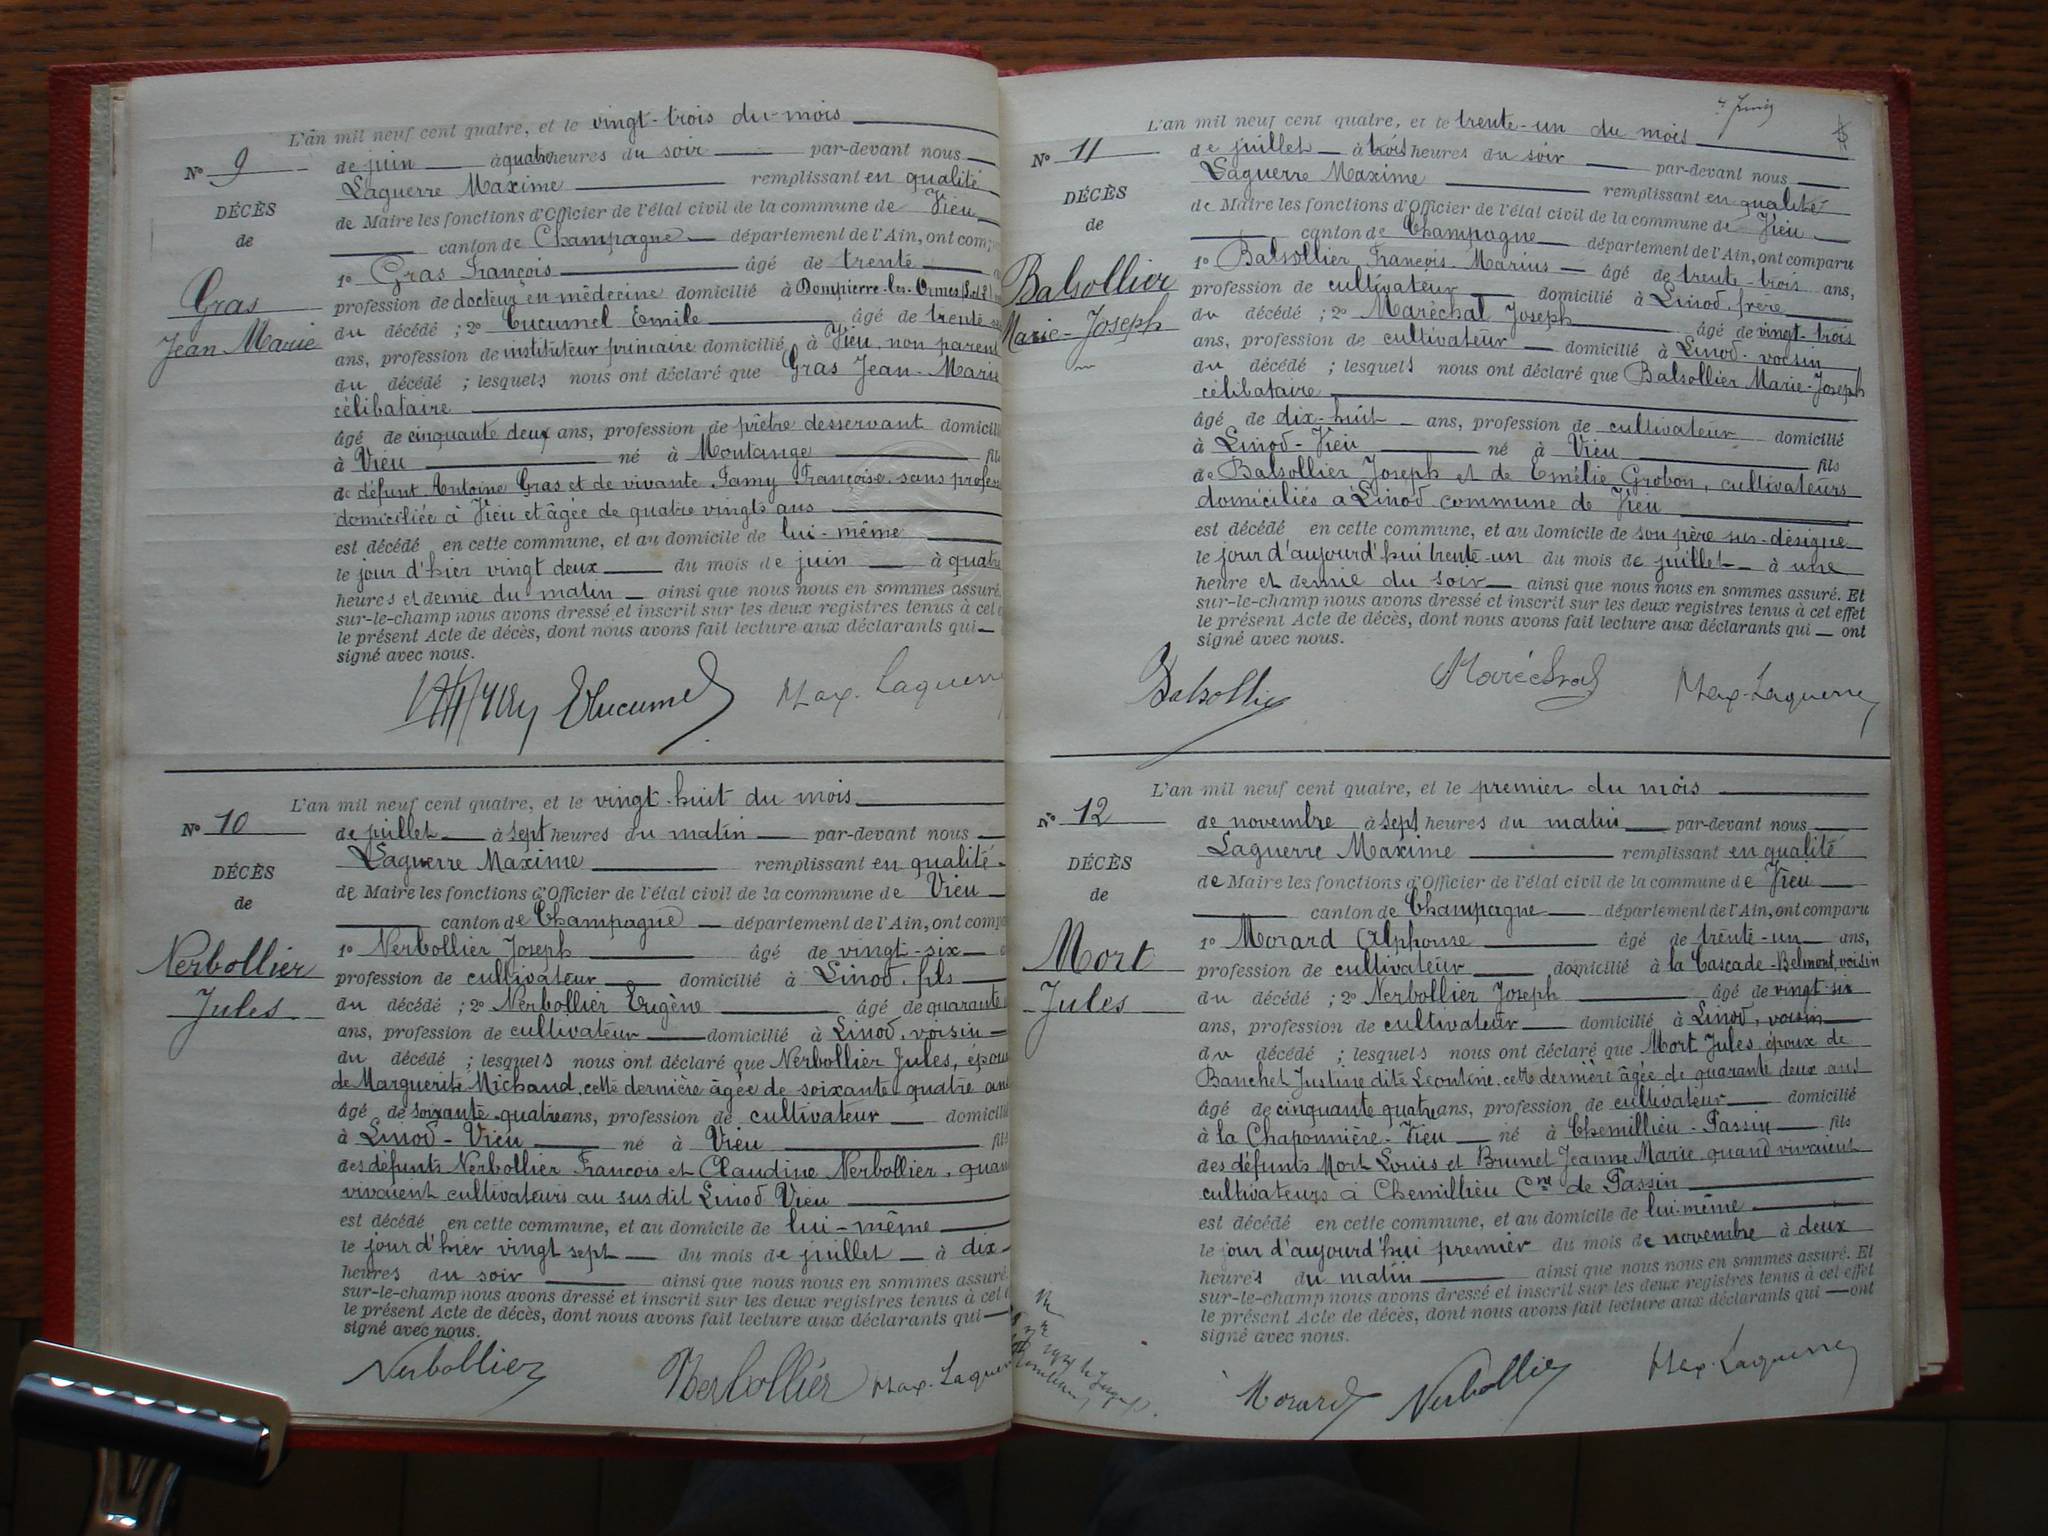 L'an mil neuf cent quatre, et le vingt-trois du mois
N° 9
de juin à quatre heures du soir par-devant nous
Laguerre Maxime remplissant en qualité
DÉCÈS
de Maire les fonctions d'Officier de l'état civil de la commune de Vieu
de
canton de Champagne département de l'Ain, ont comp
1° Gras François âgé de trente
Gras
Jean Marie
profession de docteur en médecine domicilié à Dompierre-les-Ormes (S.et L)
du décédé ; 2° Cucumel Emile âgé de trente
ans, profession de instituteur primaire domicilié à Vieu, non parents
du décédé ; lesquels nous ont déclaré que Gras Jean-Marie
célibataire
âgé de cinquante deux ans, profession de prêtre desservant domicilié
à Vieu né à Montange fils
de défunt Antoine Gras et de vivante Famy Françoise sans profes
domiciliée à Vieu et âgée de quatre vingts ans
est décédé en cette commune, et au domicile de lui-même
le jour d'hier vingt deux du mois de juin à quatre
heures et demie du matin ainsi que nous nous en sommes assuré.
sur-le-champ nous avons dressé et inscrit sur les deux registres tenus à cet e
le présent Acte de décès, dont nous avons fait lecture aux déclarants qui
signé avec nous.
ECucumel Max. Laguerre
L'an mil neuf cent quatre, et le vingt-huit du mois
N° 10
de juillet à sept heures du matin par-devant nous
Laguerre Maxime remplissant en qualité
DÉCÈS
de Maire les fonctions d'Officier de l'état civil de la commune de Vieu
de
canton de Champagne département de l'Ain, ont compa
Nerbollier
Jules
1° Nerbollier Joseph âgé de vingt-six
profession de cultivateur domicilié à Linod, fils
du décédé ; 2° Nerbollier Eugène âgé de quarante
ans, profession de cultivateur domicilié à Linod, voisin
du décédé ; lesquels nous ont déclaré que Nerbollier Jules, époux
de Marguerite Michaud, cette dernière âgée de soixante quatre ans
âgé de soixante-quatre ans, profession de cultivateur domicilié
à Linod-Vieu né à Vieu fils
des défunts Nerbollier François et Claudine Nerbollier, quan
vivaient cultivateurs au susdit Linod Vieu
est décédé en cette commune, et au domicile de lui-même
le jour d'hier vingt sept du mois de juillet à dix
heures du soir ainsi que nous nous en sommes assuré.
sur-le-champ nous avons dressé et inscrit sur les deux registres tenus à cet e
le présent Acte de décès, dont nous avons fait lecture aux déclarants qui
signé avec nous.
Nerbollier Nerbollier Max. Laguerre
L'an mil neuf cent quatre, et le trente-un du mois
N° 11
de juillet à trois heures du soir par-devant nous
Laguerre Maxime remplissant en qualité
DÉCÈS
de Maire les fonctions d'Officier de l'état civil de la commune de Vieu
de
canton de Champagne département de l'Ain, ont comparu
Balsollier
Marie-Joseph
1° Balsollier François-Marius âgé de trente-trois ans,
profession de cultivateur domicilié à Linod, frère
du décédé ; 2° Maréchal Joseph âgé de vingt-trois
ans, profession de cultivateur domicilié à Linod, voisin
du décédé ; lesquels nous ont déclaré que Balsollier Marie-Joseph
célibataire
âgé de dix-huit ans, profession de cultivateur domicilié
à Linod-Vieu né à Vieu fils
de Balsollier Joseph et de Emélie Grobon, cultivateurs
domiciliés à Linod commune de Vieu
est décédé en cette commune, et au domicile de son père sus-désigné
le jour d'aujourd'hui trente-un du mois de juillet à une
heure et demie du soir ainsi que nous nous en sommes assuré. Et
sur-le-champ nous avons dressé et inscrit sur les deux registres tenus à cet effet
le présent Acte de décès, dont nous avons fait lecture aux déclarants qui ont
signé avec nous.
Balsollier Maréchal Max. Laguerre
L'an mil neuf cent quatre, et le premier du mois
N° 12
de novembre à sept heures du matin par-devant nous
Laguerre Maxime remplissant en qualité
DÉCÈS
de Maire les fonctions d'Officier de l'état civil de la commune de Vieu
de
canton de Champagne département de l'Ain, ont comparu
Mort
Jules
1° Morard Alphonse âgé de trente-un ans,
profession de cultivateur domicilié à la Cascade-Belmont, voisin
du décédé ; 2° Nerbollier Joseph âgé de vingt-six
ans, profession de cultivateur domicilié à Linod, voisin
du décédé ; lesquels nous ont déclaré que Mort Jules époux de
Banchet Justine dite Léontine, cette dernière âgée de quarante deux ans
âgé de cinquante quatre ans, profession de cultivateur domicilié
à la Chaponnière-Vieu né à Chemillieu-Passin fils
des défunts Mort Louis et Brunet Jeanne Marie quand vivaient
cultivateurs à Chemillieu Cne de Passin
est décédé en cette commune, et au domicile de lui-même
le jour d'aujourd'hui premier du mois de novembre à deux
heures du matin ainsi que nous nous en sommes assuré. Et
sur-le-champ nous avons dressé et inscrit sur les deux registres tenus à cet effet
le présent Acte de décès, dont nous avons fait lecture aux déclarants qui ont
signé avec nous.
Morard Nerbollier Max. Laguerre